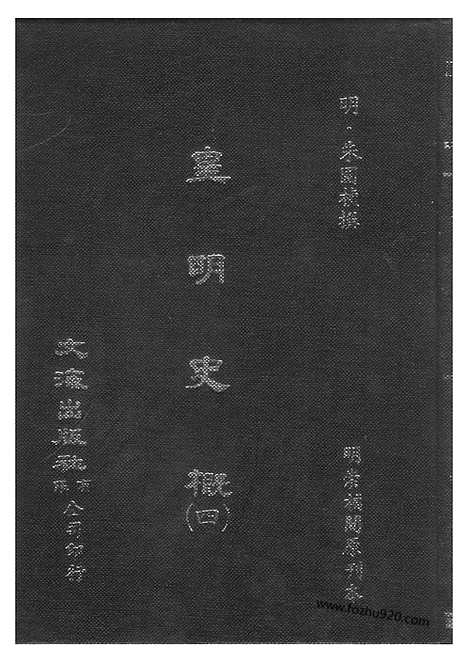 明・朱國禎撰
明崇禎間原刊本
皇明史概(四)
文海出版社有限公司印行
www.fozhu920.com